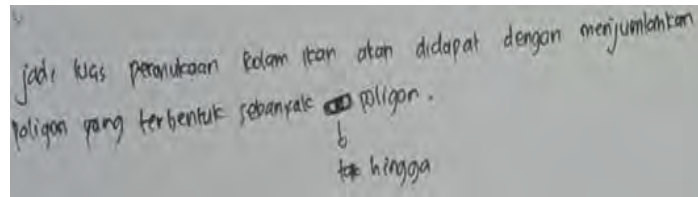 jadi luas permukaan kolam ikan akan didapat dengan menjumlahkan
poligon yang terbentuk sebanyak poligon.
tak hingga